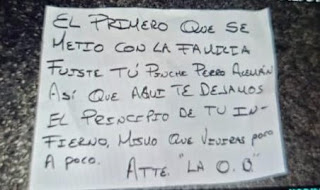 EL PRIMERO QUE SE
METIO CON LA FAMILIA
FUISTE TÚ PINCHE PERRO ALEMÁN
ASÍ QUE AQUI TE DEJAMOS
EL PRINCIPIO DE TU IN-
FIERNO, MISMO QUE VIVIRAS POCO
A POCO.
ATTE. "LA O.O"